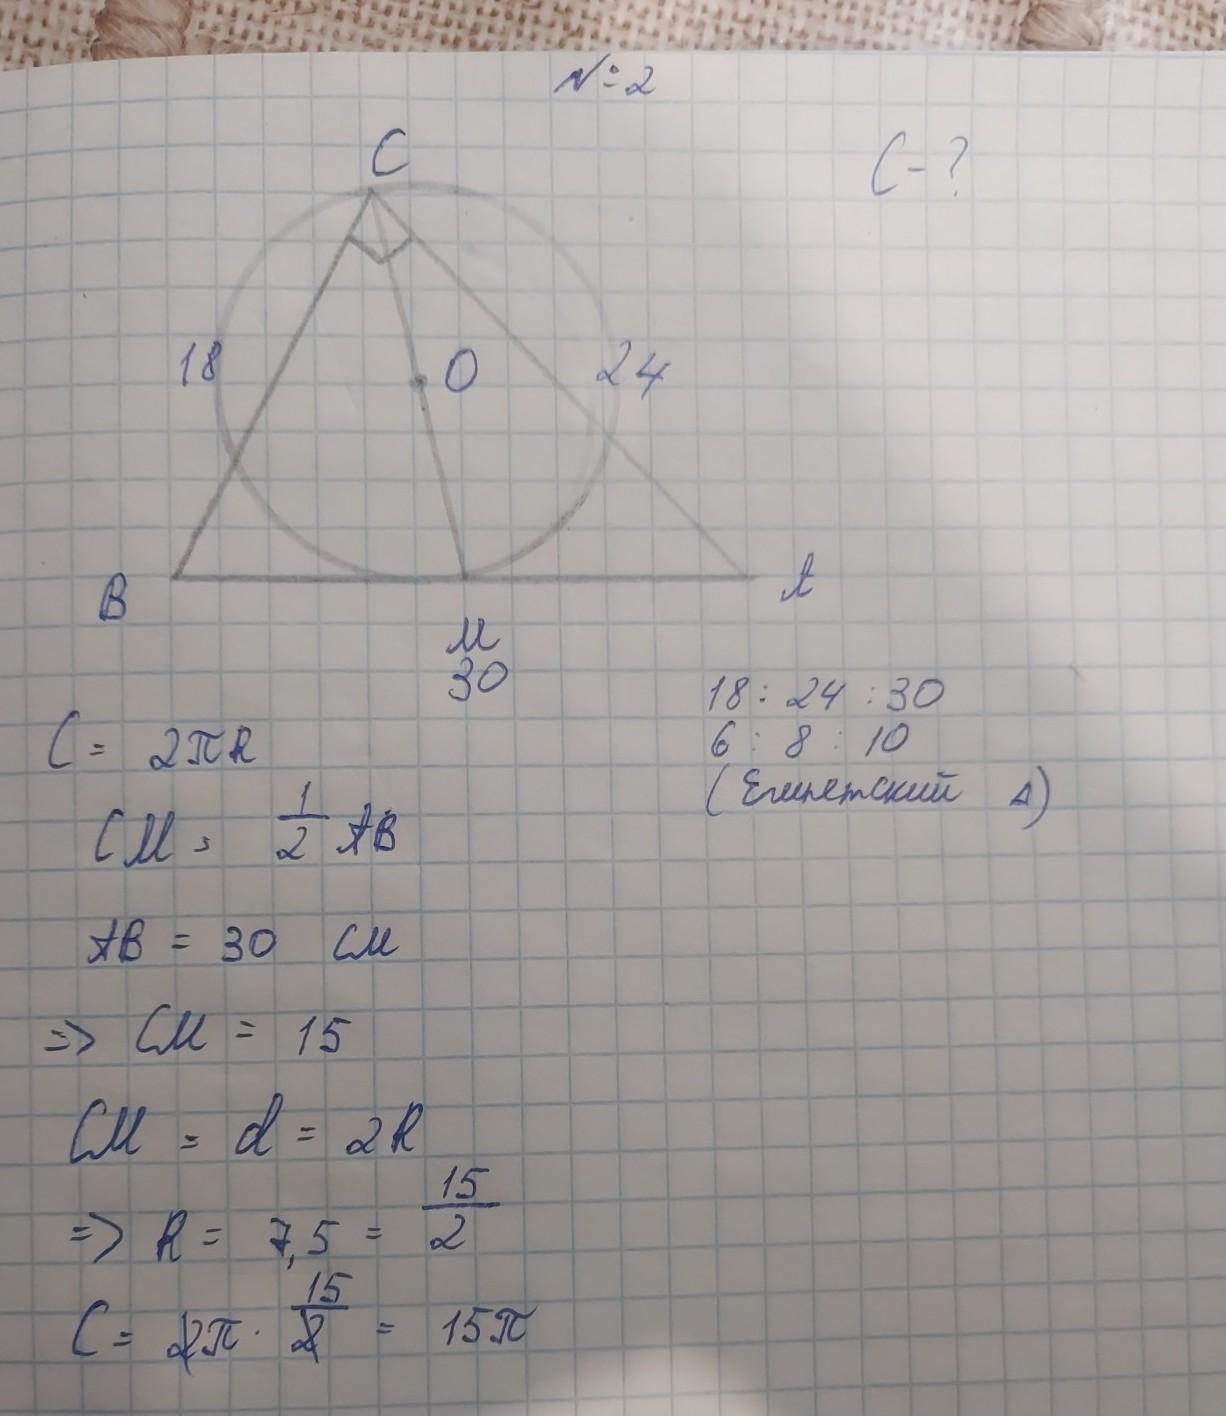 №2
C
C-?
18
O
24
B
A
M
30
18 : 24 : 30
6 : 8 : 10
(Египетский Δ)
C = 2πR
CM = 1/2 AB
AB = 30 см
=> CM = 15
CM = d = 2R
=> R = 7,5 = 15/2
C = 2π · 15/2 = 15π